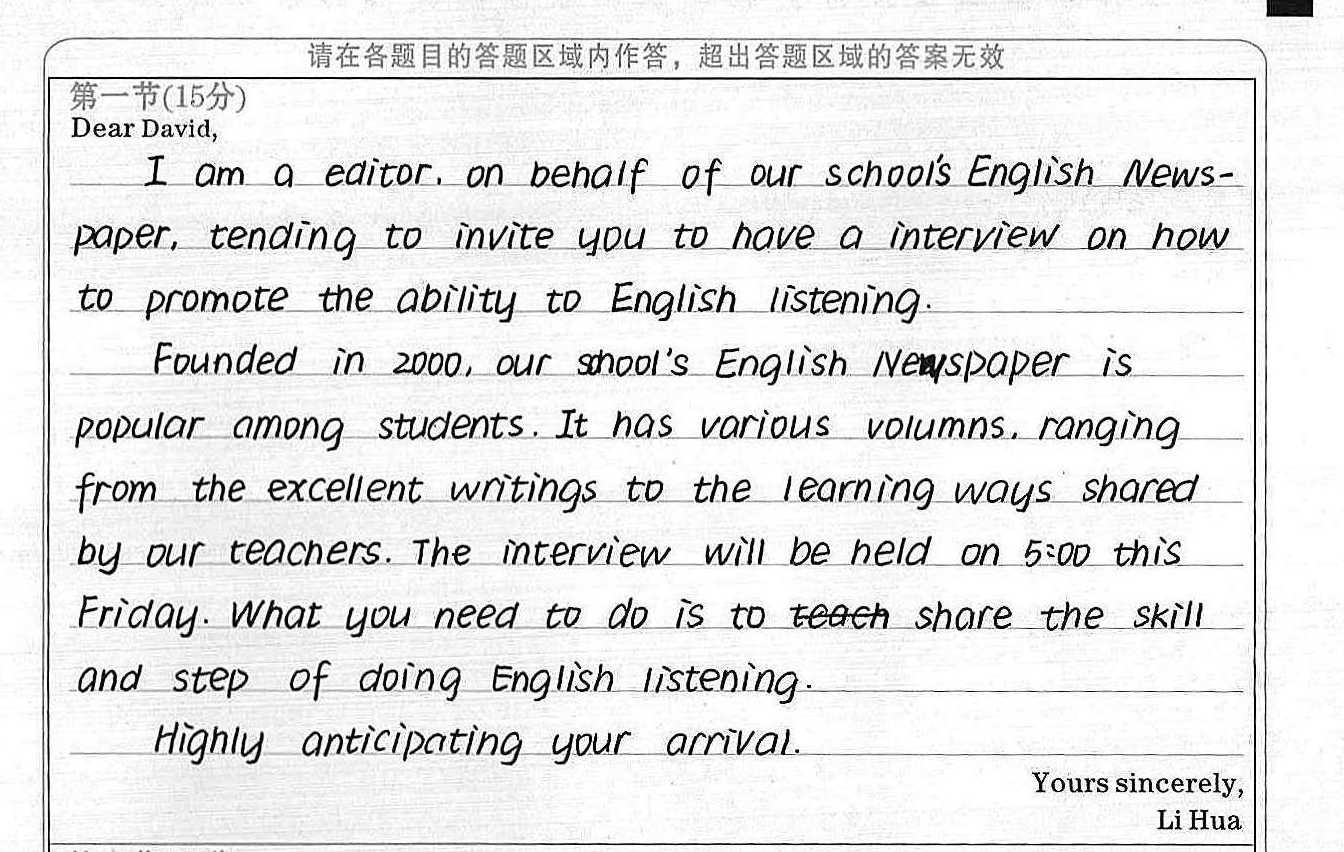 请在各题目的答题区域内作答，超出答题区域的答案无效
第一节(15分)
Dear David,
I am a editor. on behalf of our school's English News-
paper, tending to invite you to have a interview on how
to promote the ability to English listening.
Founded in 2000, our school's English Newspaper is
popular among students. It has various volumns. ranging
from the excellent writings to the learning ways shared
by our teachers. The interview will be held on 5:00 this
Friday. What you need to do is to teach share the skill
and step of doing English listening.
Highly anticipating your arrival.
Yours sincerely,
Li Hua